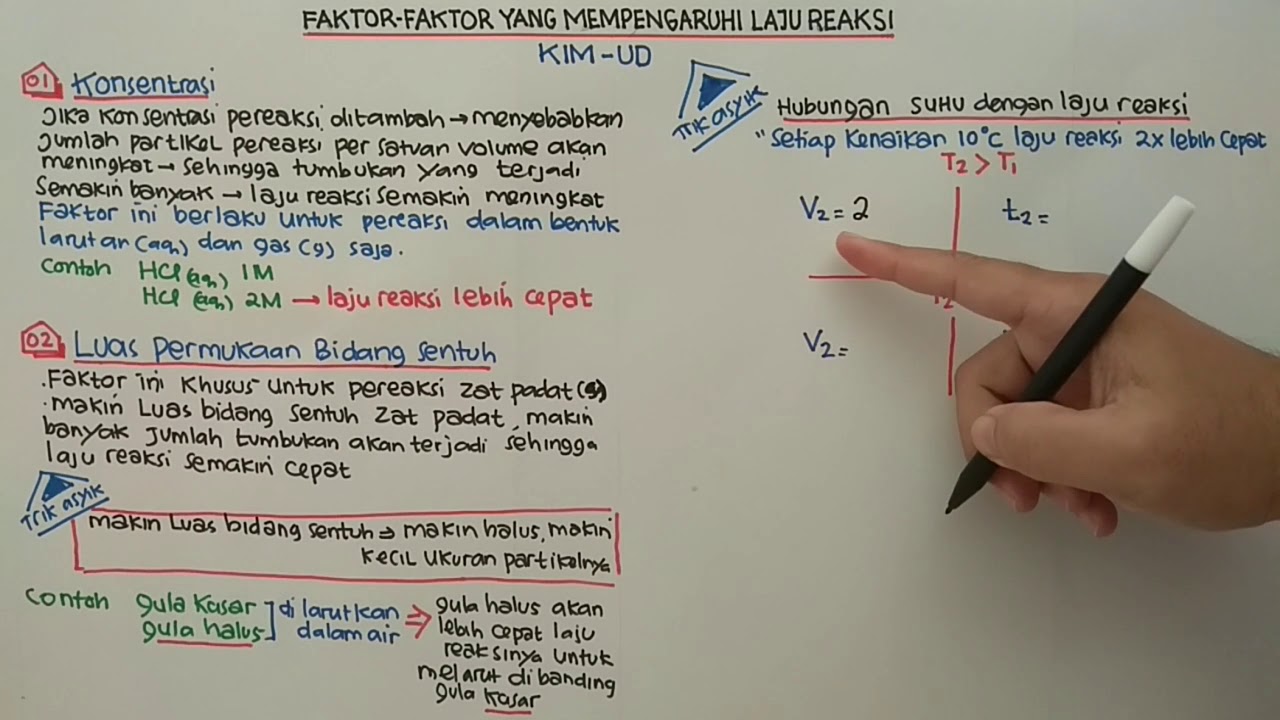 FAKTOR-FAKTOR YANG MEMPENGARUHI LAJU REAKSI
KIM-UD
01 Konsentrasi
Jika konsentrasi pereaksi ditambah → menyebabkan
jumlah partikel pereaksi per satuan volume akan
meningkat → sehingga tumbukan yang terjadi
semakin banyak → laju reaksi semakin meningkat
Faktor ini berlaku untuk pereaksi dalam bentuk
larutan (aq) dan gas (g) saja.
Contoh HCl (aq) 1M
HCl (aq) 2M → laju reaksi lebih cepat
02 Luas Permukaan Bidang Sentuh
. Faktor ini khusus untuk pereaksi zat padat (s)
. makin Luas bidang sentuh zat padat, makin
banyak jumlah tumbukan akan terjadi sehingga
laju reaksi semakin cepat
Trik asyik
makin Luas bidang sentuh ⇒ makin halus, makin
kecil ukuran partikelnya
Contoh gula kasar
gula halus
di larutkan
dalam air
⇒ gula halus akan
lebih cepat laju
reaksinya untuk
melarut di banding
gula kasar
Trik asyik
Hubungan suhu dengan laju reaksi
"Setiap kenaikan 10°C laju reaksi 2x lebih cepat
T2 > T1
V2 = 2
t2 =
V2 =